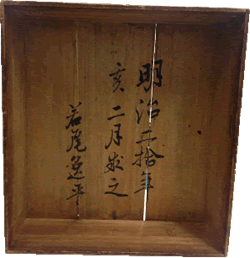 明治弐拾年
亥二月求之
若尾逸平